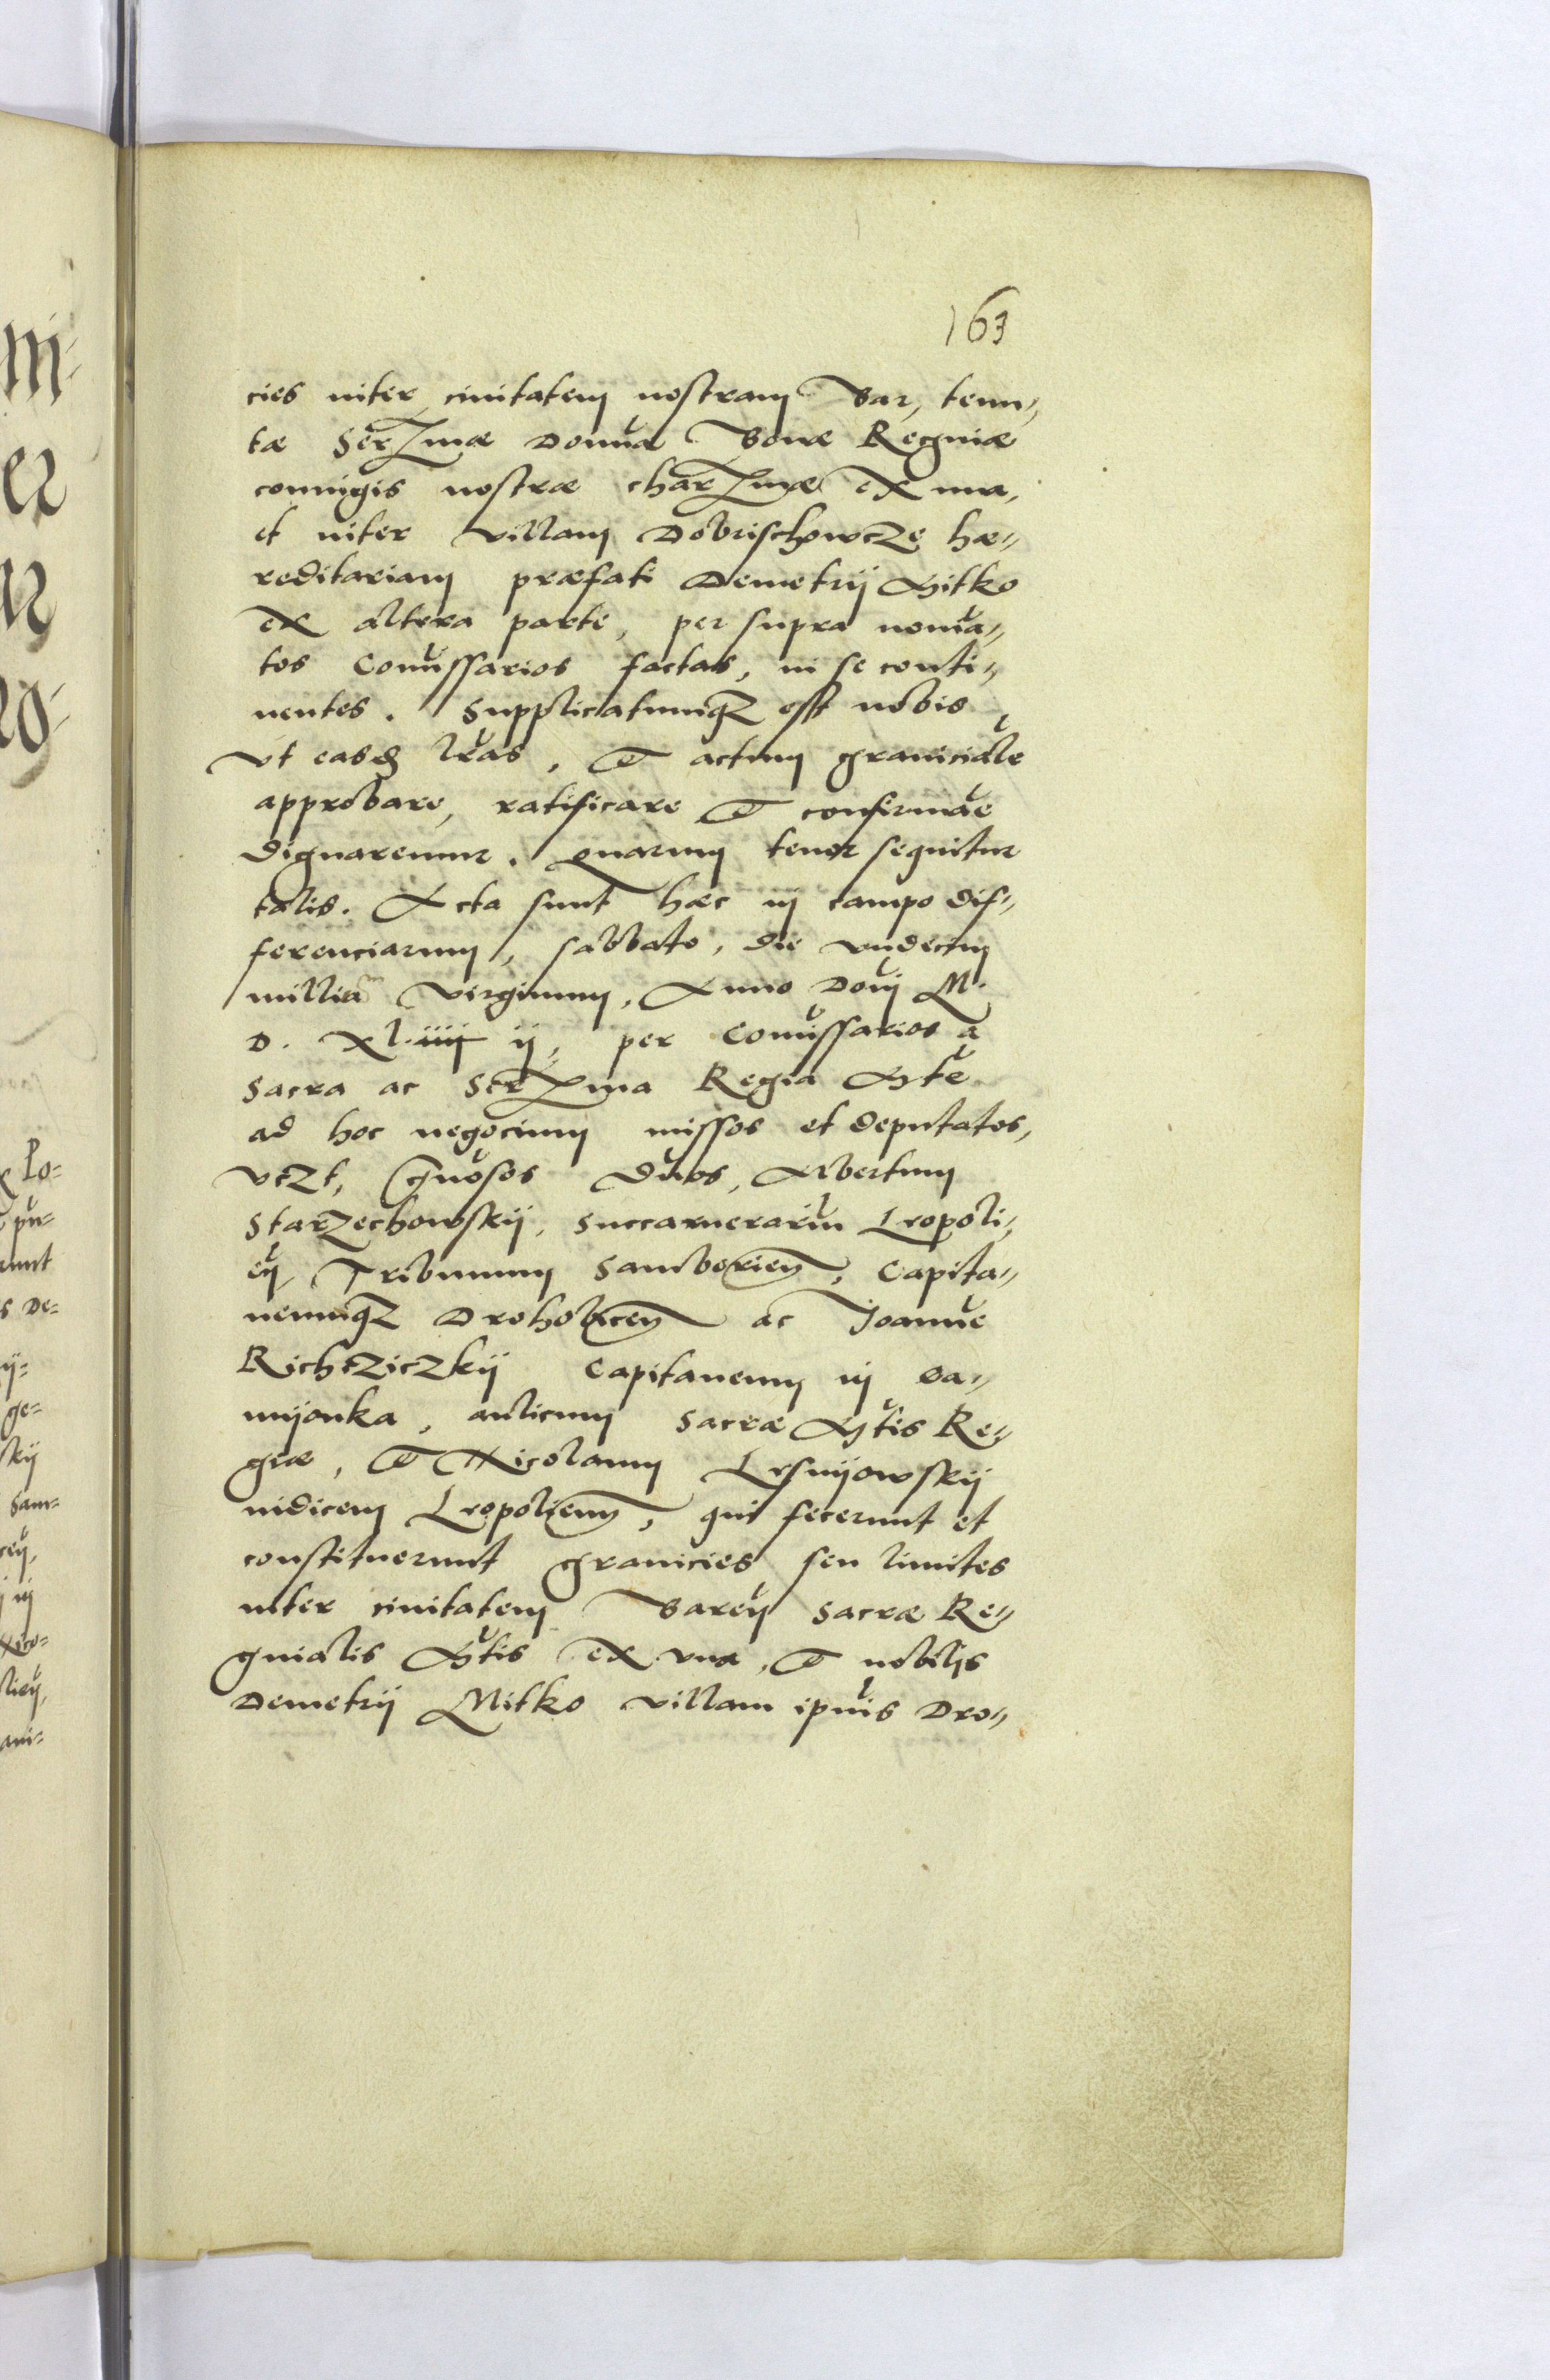 163
cies inter civitatem nostram Bar, tenu„
tæ Serzmæ Domnæ Bonæ Reginæ
coniugis nostræ charzmæ ex una,
et inter villam Dobrischowcze hæ„
reditariam præfati Demetrij Mitko
ex altera parte, per supra nomīa„
tos Comissarios factas, in se conti„
nentes. Supplicatumqz est nobis
vt easd lras, & actum graniciale
approbare, ratificare & confirmare
dignaremur. Quarum tenor sequitur
talis. Acta sunt hæc in campo dif„
ferenciarum, sabbato, die vndecim
millia virginum, Anno Dnj M.
D. XL. iiii ij, per Comissarios a
Sacra ac Serzma Regia Mte
ad hoc negocium missos et deputatos,
vtzt, Gnosos Dnos, Albertum
Starzechowskij, Succamerariu Leopoli„
en Tribunum Samborien, Capita„
neumqz Drohobicen ac Joanne
Richcziczkij Capitaneum in Ca„
mijonka, aulicum Sacræ Mtis Re„
giæ, & Nicolaum Lysnijowskij
iudicem Leopolien, qui fecerunt et
constituerunt granicies seu limites
inter civitatem Baren Sacræ Re„
ginalis Mtis ex vna, & nobilis
Demetrij Mitko villam ipius Dro„
m=
er
Po=
pu=
unt
s De=
ij=
ge=
skij
Sam=
cen,
in
Nico=
lien,
ani=